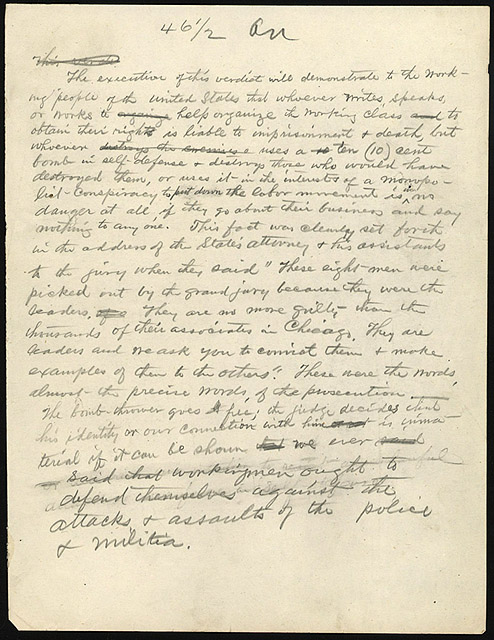 46 1/2 An
This verdict
The executive of this verdict will demonstrate to the work-
ing people of the United States that whoever writes, speaks,
or works to organize help organize the working class and to
obtain their rights is liable to imprisonment & death, but
whoever destroys the enemies & uses a ten (10) cent
bomb in self-defense & destroys those who would have
destroyed them, or uses it in the interests of a monopo-
list-conspiracy to put down the labor movement is in no
danger at all, if they go about their business and say
nothing to any one. This fact was clearly set forth
in the address of the States attorney & his assistants
to the jury when they said "These eight men were
picked out by the grand jury because they were the
leaders, They are no more guilty than the
thousands of their associates in Chicago. They are
leaders and we ask you to convict them & make
examples of them to the others". These were the words,
almost the precise words of the prosecution.
The bomb-thrower goes free; the judge decides that
his identity or our connection with him is imma-
terial if it can be shown that we ever said
said that workingmen ought to
defend themselves against the
attacks & assaults of the police
& militia.